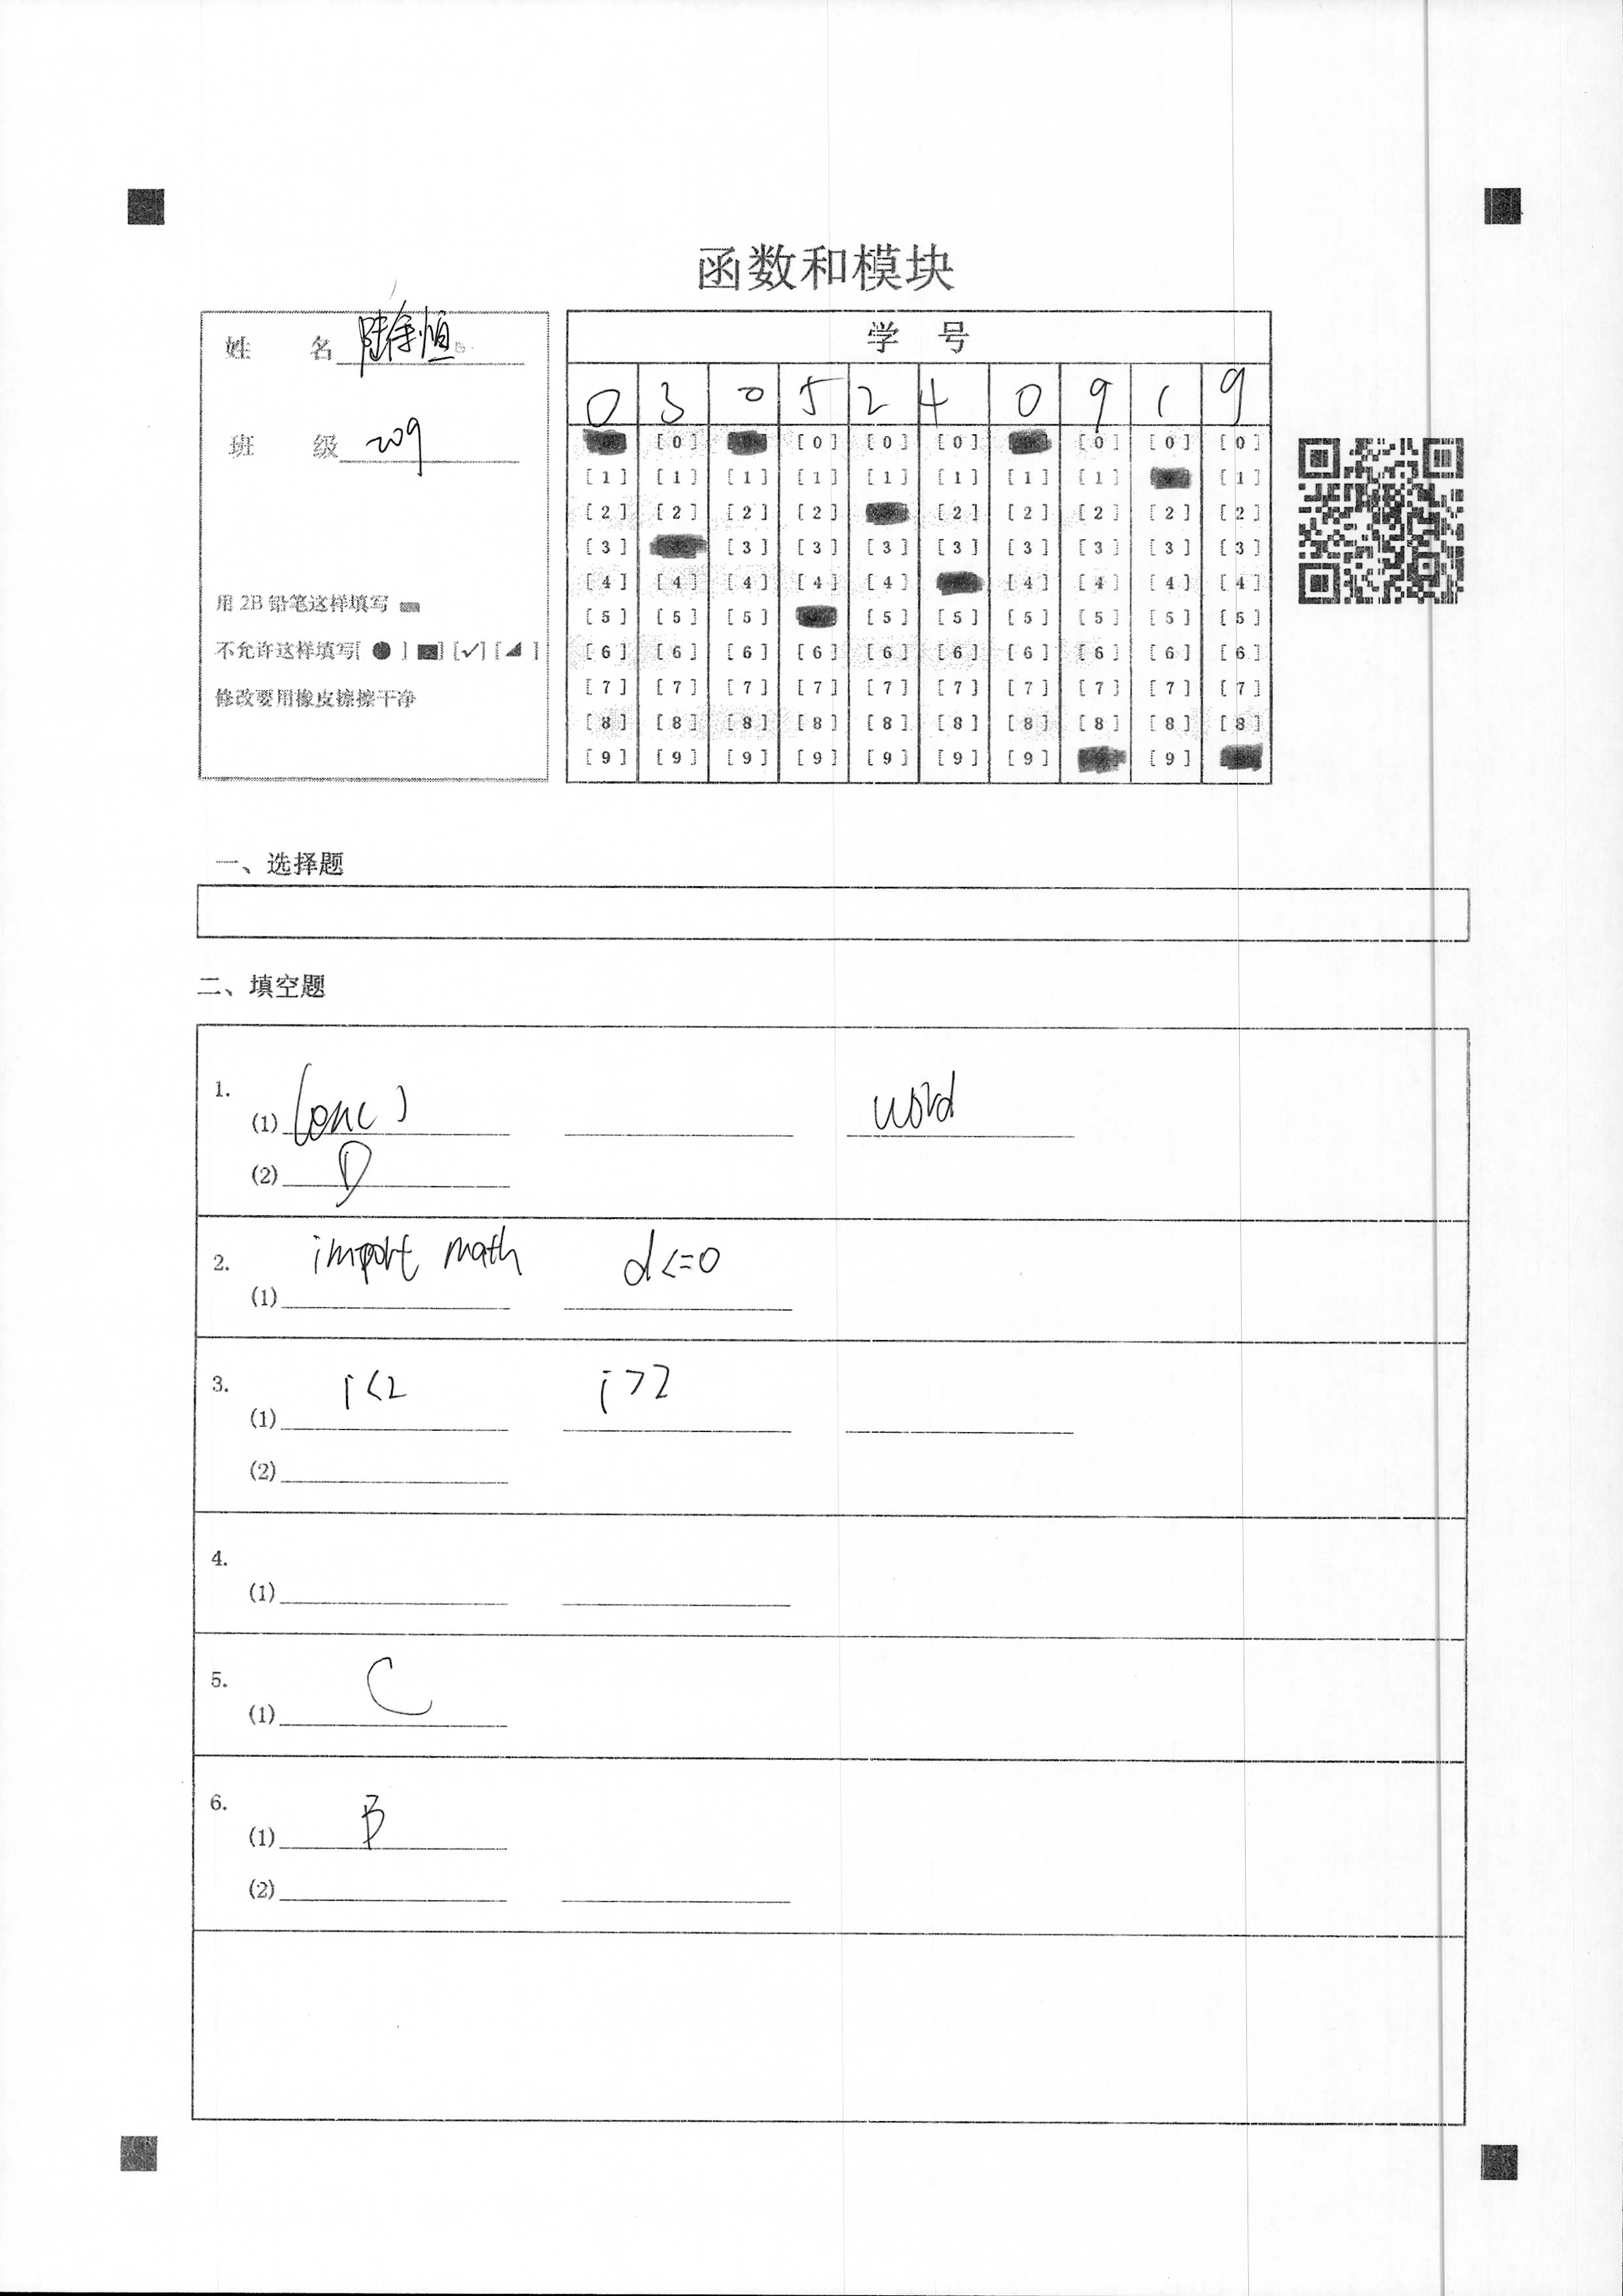 函数和模块
姓 名 陆余恒
班 级 209
用 2B 铅笔这样填写
不允许这样填写[ ● ] [■] [✓] [◢ ]
修改要用橡皮擦擦干净
学 号
0 3 0 5 2 4 0 9 1 9
[0] [0] [0] [0] [0] [0] [0]
[1] [1] [1] [1] [1] [1] [1] [1] [1]
[2] [2] [2] [2] [2] [2] [2] [2] [2]
[3] [3] [3] [3] [3] [3] [3] [3] [3]
[4] [4] [4] [4] [4] [4] [4] [4] [4]
[5] [5] [5] [5] [5] [5] [5] [5] [5]
[6] [6] [6] [6] [6] [6] [6] [6] [6] [6]
[7] [7] [7] [7] [7] [7] [7] [7] [7] [7]
[8] [8] [8] [8] [8] [8] [8] [8] [8] [8]
[9] [9] [9] [9] [9] [9] [9] [9]
一、选择题
二、填空题
1.
(1) word
(2) D
2.
(1) import math d<=0
3.
(1) i<2 i>2
(2)
4.
(1)
5.
(1) C
6.
(1) B
(2)